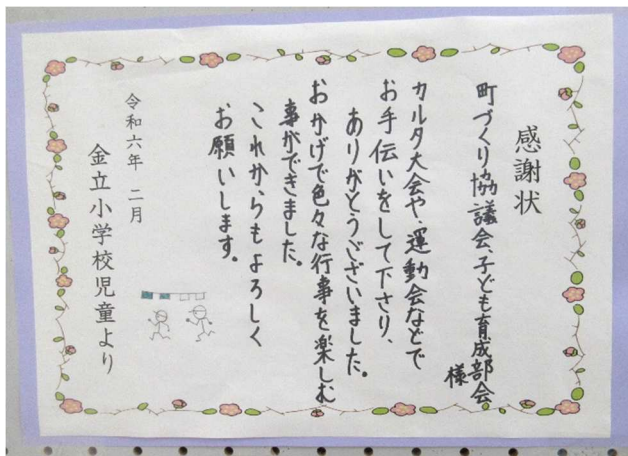 感謝状
町づくり協議会、子ども育成部会
様
カルタ大会や、運動会などで
お手伝いをして下さり、
ありがとうございました。
おかげで色々な行事を楽しむ
事ができました。
これからもよろしく
お願いします。
令和六年 二月
金立小学校児童より